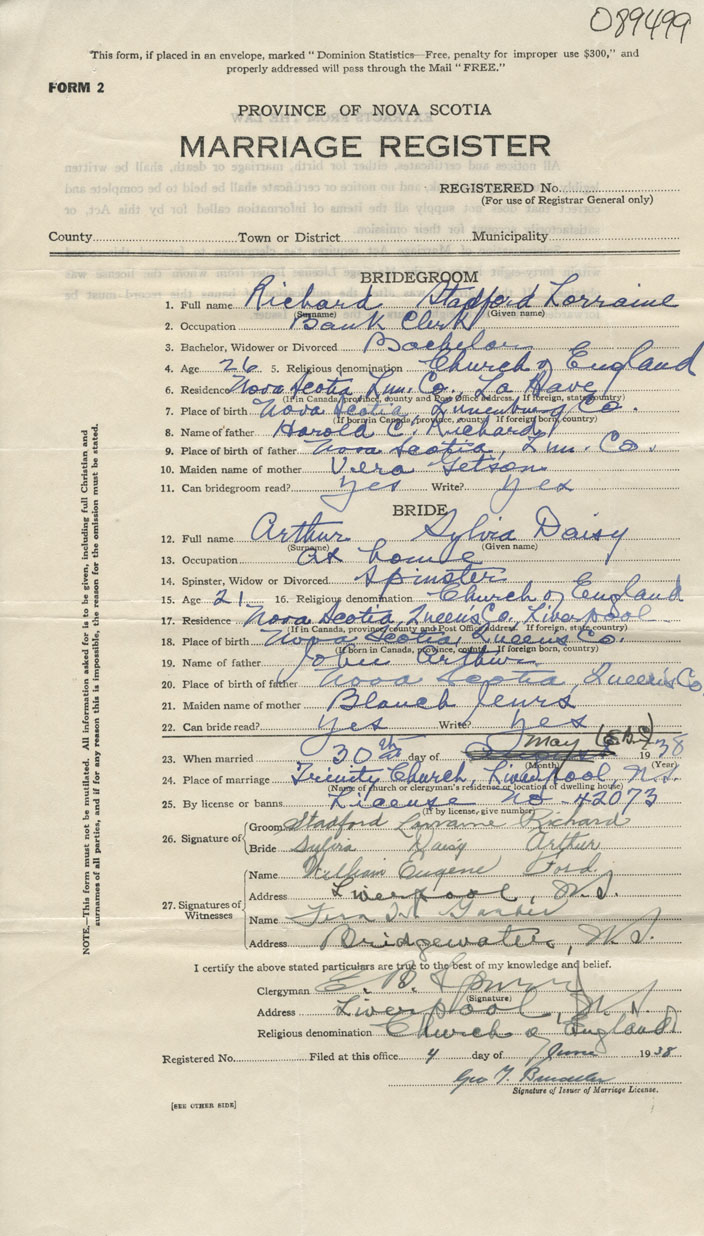 089499
This form, if placed in an envelope, marked "Dominion Statistics—Free, penalty for improper use $300," and
properly addressed will pass through the Mail "FREE."
FORM 2
PROVINCE OF NOVA SCOTIA
MARRIAGE REGISTER
REGISTERED No.
(For use of Registrar General only)
County Town or District Municipality
BRIDEGROOM
1. Full name Richard Stadford Lorraine
(Surname) (Given name)
2. Occupation Bank Clerk
3. Bachelor, Widower or Divorced Bachelor
4. Age 26 5. Religious denomination Church of England
6. Residence Nova Scotia Lun. Co. La Have
(If in Canada, province, county and Post Office address. If foreign, state country)
7. Place of birth Nova Scotia, Lunenburg Co.
(If born in Canada, province, county If foreign born, country)
8. Name of father Harold C. Richard
9. Place of birth of father Nova Scotia, Lun. Co.
10. Maiden name of mother Vera Getson
11. Can bridegroom read? yes Write? yes
BRIDE
12. Full name Arthur Sylvia Daisy
(Surname) (Given name)
13. Occupation at home
14. Spinster, Widow or Divorced Spinster
15. Age 21 16. Religious denomination Church of England
17. Residence Nova Scotia, Queen's Co., Liverpool
(If in Canada, province, county and Post Office address. If foreign, state country)
18. Place of birth Nova Scotia, Queens Co.
(If born in Canada, province, county If foreign born, country)
19. Name of father John Arthur
20. Place of birth of father Nova Scotia, Queen's Co.
21. Maiden name of mother Blanch
22. Can bride read? yes Write? yes
23. When married 30th day of May 1938
(Month) (Year)
24. Place of marriage Trinity Church, Liverpool, N.S.
(Name of church or clergyman's residence or location of dwelling house)
25. By license or banns License no - 42073
(If by license, give number)
26. Signature of Groom Stadford Lorraine Richard
Bride Sylvia Daisy Arthur
27. Signatures of Witnesses Name William Eugene Ford
Address Liverpool, N.S.
Name
Address Bridgewater, N.S.
I certify the above stated particulars are true to the best of my knowledge and belief.
Clergyman E. B.
(Signature)
Address Liverpool,
Religious denomination Church of England
Registered No. Filed at this office 4 day of June 1938
Geo
Signature of Issuer of Marriage License.
[SEE OTHER SIDE]
NOTE.—This form must not be mutilated. All information asked for is to be given, including full Christian and
surnames of all parties, and if for any reason this is impossible, the reason for the omission must be stated.